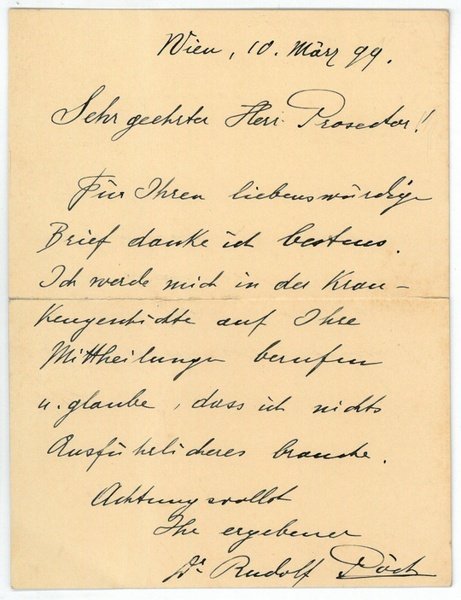 Wien, 10. März 99.
Sehr geehrter Herr Prosector!
Für Ihren liebenswürdigen
Brief danke ich bestens.
Ich werde mich in der Kran-
kengeschichte auf Ihre
Mittheilungen berufen
u. glaube, dass ich nichts
Ausführlicheres brauche.
Achtungsvollst
Ihr ergebener
Dr Rudolf Pöch